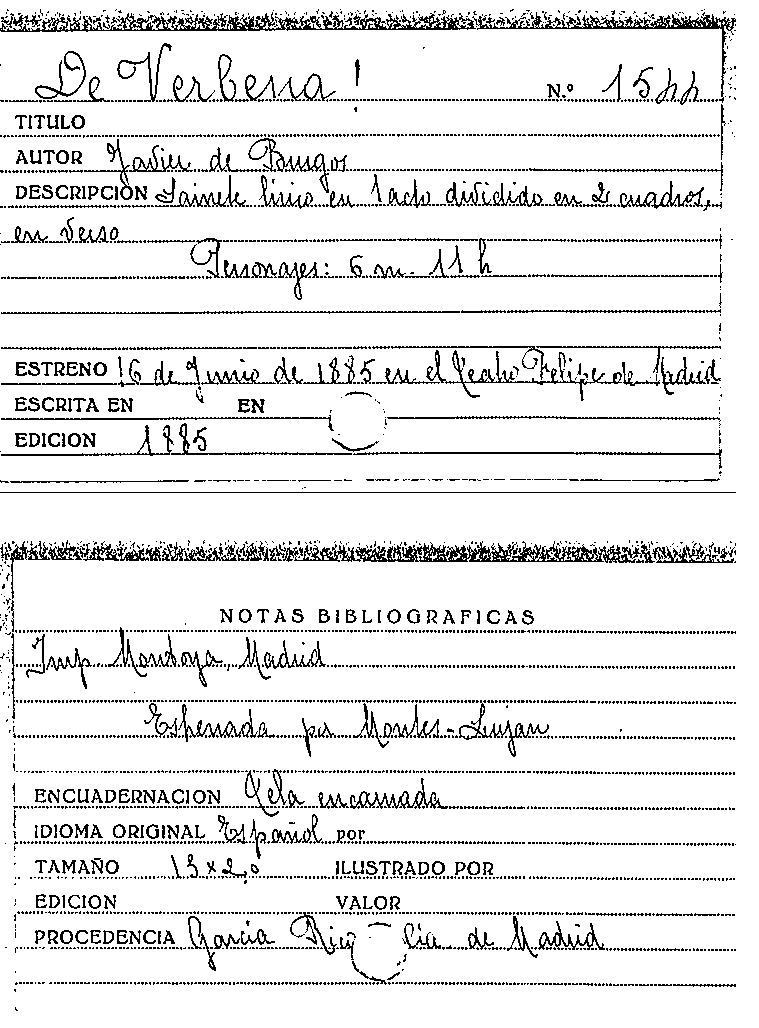 De Verbena!
N.º 1544
TITULO
AUTOR Javier de Burgos
DESCRIPCIÓN Sainete lírico en 1 acto dividido en 2 cuadros,
en verso
Personajes: 6 m. 11 h
ESTRENO 16 de Junio de 1885 en el Teatro Felipe de Madrid
ESCRITA EN EN
EDICION 1885
NOTAS BIBLIOGRAFICAS
Imp. Montoya, Madrid
Estrenada por Montes-Lujan
ENCUADERNACION Tela encarnada
IDIOMA ORIGINAL Español por
TAMAÑO 13 x 20 ILUSTRADO POR
EDICION VALOR
PROCEDENCIA Garcia Rico Cia de Madrid